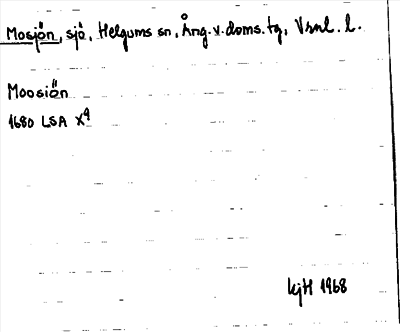 Mosjön, sjö, Helgums sn, Ång.v.doms.tg, Vrnl. l.
Moosiön
1680 LSA X9
kjH 1968